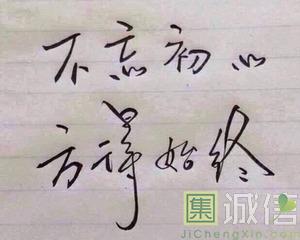 不忘初心
方得始终
集诚信
JiChengXin.com